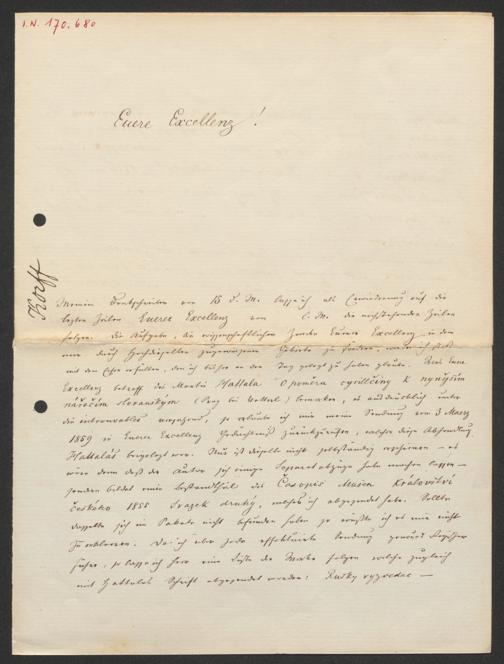 I.N. 170.680
Euere Excellenz!
Korff
Meinem Dankschreiben vom 15 d. M. lasse ich als Erwiederung auf die
letzten Zeilen Euerer Excellenz vom d. M. die nachstehenden Zeilen
folgen. Die Aufgabe, die wissenschaftlichen Zwecke Euerer Excellenz in dem
mir durch Gebiete zu fördern, werde ich stets
mit dem Eifer erfüllen, den ich bisher an den Tag gelegt zu haben glaube. Was Euere
Excellenz betreff des Hattala O poměru cyrillčiny k nynějším
nářečím slovanským (Prag bei ) bemerken, es ausdrücklich unter
die , so erlaube ich mir meine Sendung vom 3 Maerz
1859 in Euerer Excellenz Gedächtniß zurückzurufen, welcher diese Abhandlung
Hattalas beigelegt war. Nun ist dieselbe nicht selbständig erschienen – es
wäre denn daß der Autor sich einige Separatabzüge habe machen lassen –
sondern bildet einen Bestandtheil des Časopis Musea Královstvi
českého 1855 Svazek druhý, welches ich abgesendet habe. Sollte
dasselbe sich im Pakete nicht befunden haben so wüßte ich es mir nicht
zu erklären. Da ich über jede Sendung genaues Register
führe, so lasse ich hier eine Liste der Werke folgen welche zugleich
mit Hattalas Schrift abgesendet worden: